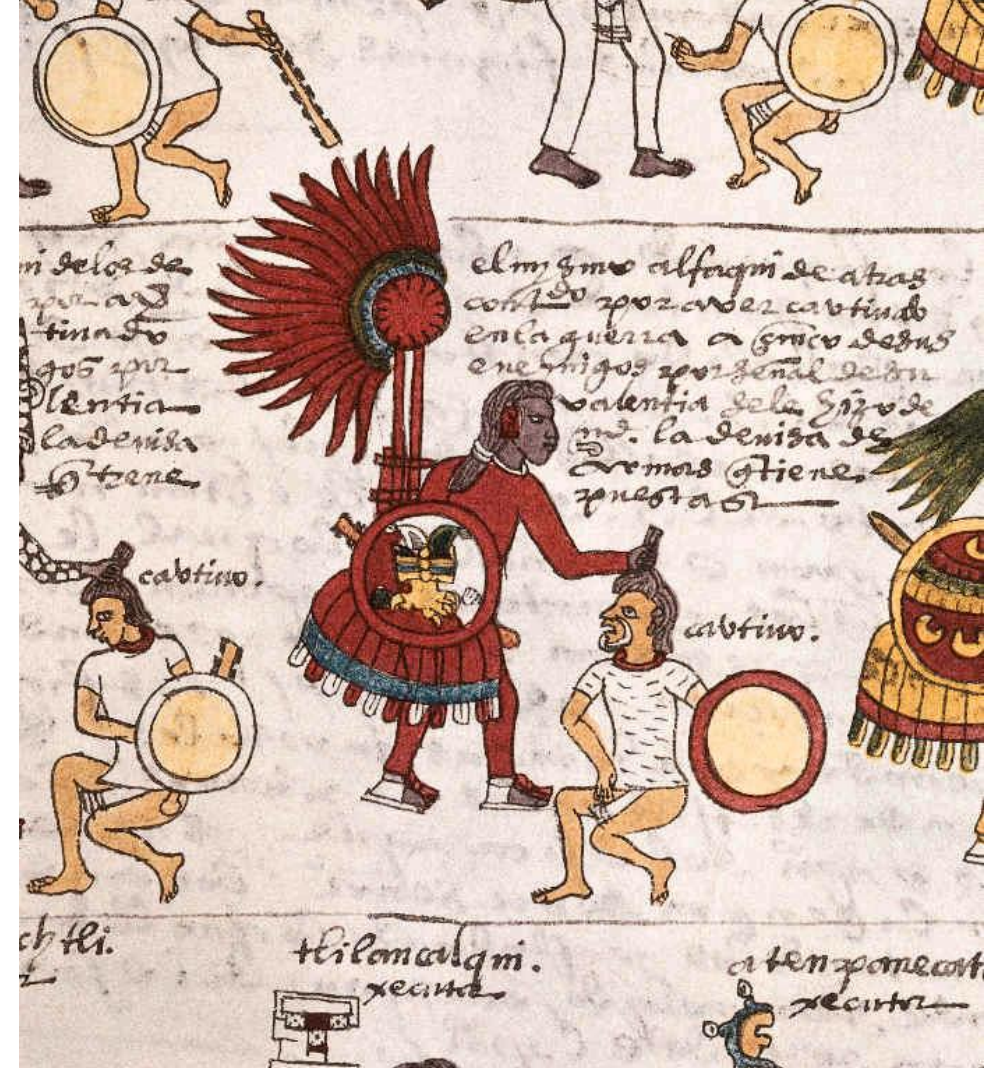 ni de los de
por a
tivado
gos por
lentia
la devisa
q̃ tiene
el mysmo alfaqui de atras
contdo por aver cautivado
en la guerra a çinco de sus
enemigos por señal de su
valentia se le hizo de
md. la devisa de
armas q̃ tiene
puesta
cavtivo.
cavtivo.
chtli.
tlilancalqui.
xecutor
atenpanecat
xecutor